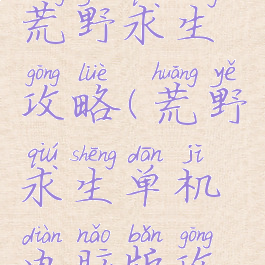 荒野求生
gōng lüè huāng yě
攻略(荒野
qiú shēng dān jī
求生单机
diàn nǎo bǎn gōng
电脑版攻